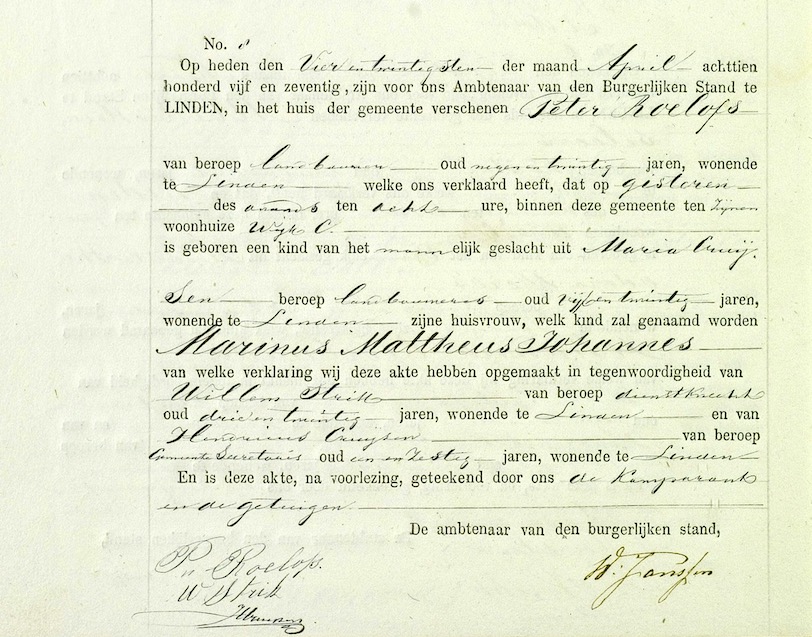 No. 8
Op heden den Vier en twintigsten der maand April achttien
honderd vijf en zeventig, zijn voor ons Ambtenaar van den Burgerlijken Stand te
LINDEN, in het huis der gemeente verschenen Peter Roelofs
van beroep landbouwer oud negen en twintig jaren, wonende
te Linden welke ons verklaard heeft, dat op gisteren
des avonds ten acht ure, binnen deze gemeente ten zijnen
woonhuize Wijk C.
is geboren een kind van het mannelijk geslacht uit Maria Cruij-
sen beroep landbouweres oud vijf en twintig jaren,
wonende te Linden zijne huisvrouw, welk kind zal genaamd worden
Marinus Mattheus Johannes
van welke verklaring wij deze akte hebben opgemaakt in tegenwoordigheid van
Willem Strik van beroep dienstknecht
oud drie en twintig jaren, wonende te Linden en van
Hendrikus Cruijsen van beroep
Gemeente Secretaris oud een en zestig jaren, wonende te Linden
En is deze akte, na voorlezing, geteekend door ons de Komparant
en de getuigen
De ambtenaar van den burgerlijken stand,
P. Roelofs.
W Strik
W. Janssen